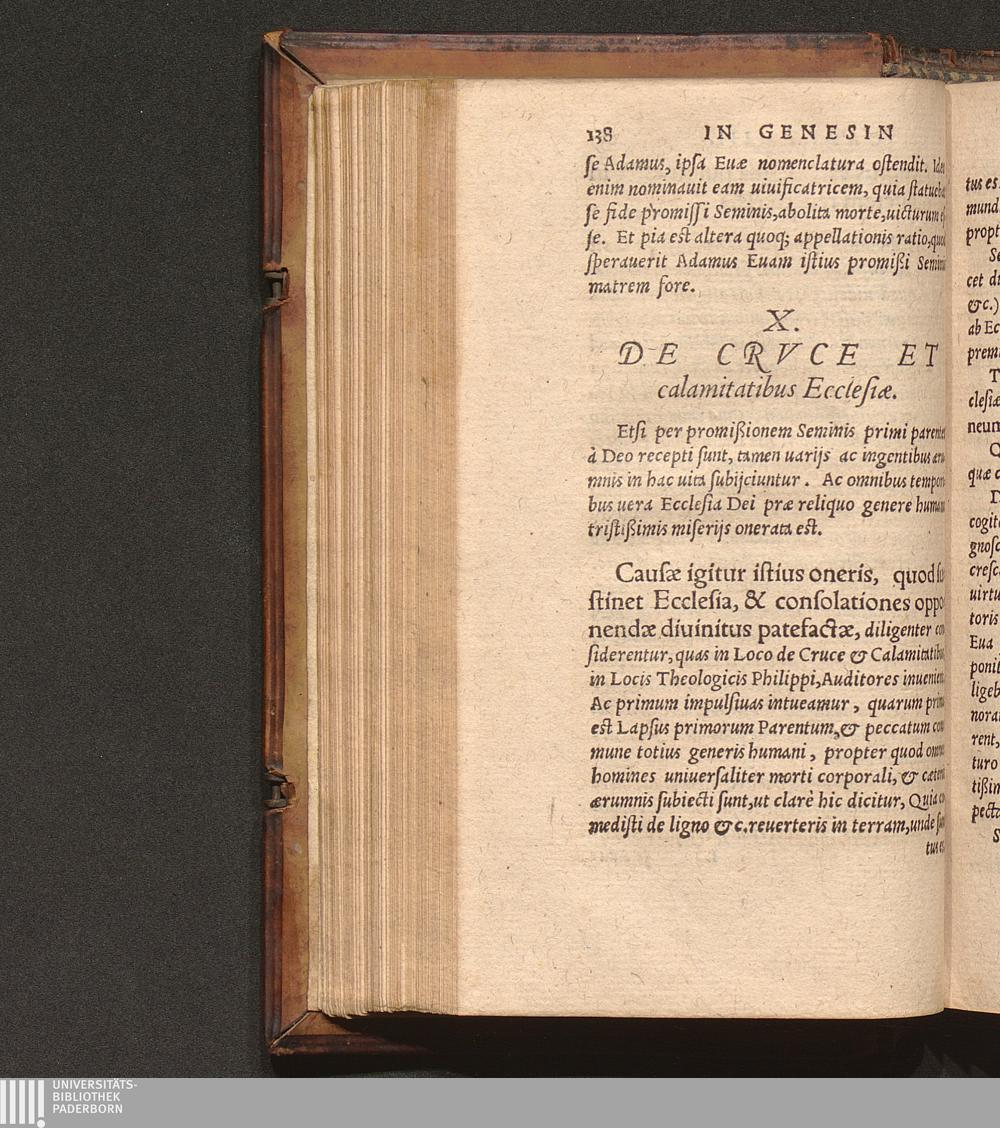 138 IN GENESIN
se Adamus, ipsa Euæ nomenclatura ostendit.
enim nominauit eam uiuificatricem, quia
se fide promissi Seminis, abolita morte, uicturum
se. Et pia est altera quoq; appellationis ratio,
sperauerit Adamus Euam istius promißi
matrem fore.
X.
DE CRVCE ET
calamitatibus Ecclesiæ.
Etsi per promißionem Seminis primi
à Deo recepti sunt, tamen uarijs ac ingentibus
mnis in hac uita subijciuntur. Ac omnibus
bus uera Ecclesia Dei præ reliquo genere
tristißimis miserijs onerata est.
Causæ igitur istius oneris, quod
stinet Ecclesia, & consolationes oppo
nendæ diuinitus patefactæ, diligenter
siderentur, quas in Loco de Cruce & Calamitatibus
in Locis Theologicis Philippi, Auditores
Ac primum impulsiuas intueamur, quarum
est Lapsus primorum Parentum, & peccatum
mune totius generis humani, propter quod
homines uniuersaliter morti corporali, &
ærumnis subiecti sunt, ut clarè hic dicitur, Quia
medisti de ligno &c. reuerteris in terram, unde
tus
tus es
mund
propt
Se
cet
&c.)
ab Ec
premi
T
clesiæ
neum
Q
quæ
cogit
gnosc
cresc
uirtu
toris
Eua
ponit
ligeb
norat
rent,
turo
tißim
pecta
S
UNIVERSITÄTS-
BIBLIOTHEK
PADERBORN